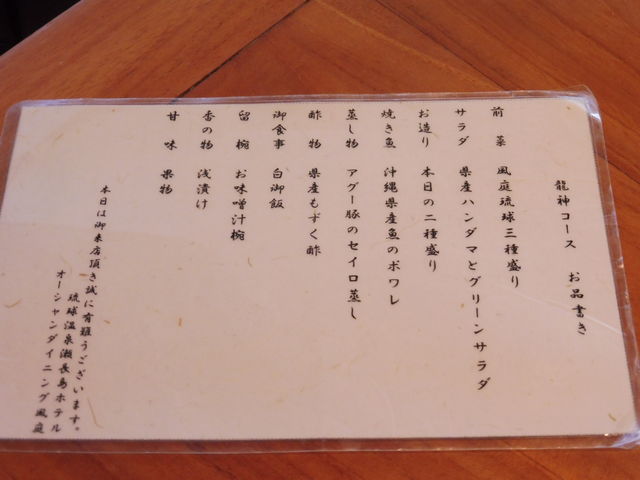 龍神コース　お品書き
前菜　風庭琉球三種盛り
サラダ　県産ハンダマとグリーンサラダ
お造り　本日の二種盛り
焼き魚　沖縄県産魚のポワレ
蒸し物　アグー豚のセイロ蒸し
酢物　県産もずく酢
御食事　白御飯
留椀　お味噌汁椀
香の物　浅漬け
甘味　果物
本日は御来店頂き誠に有難うございます。
琉球温泉瀬長島ホテル
オーシャンダイニング風庭